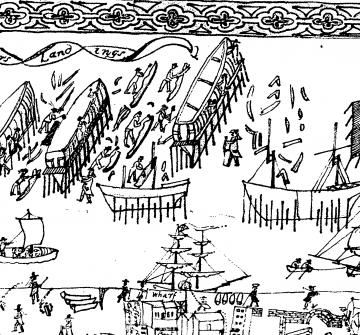 rs Landings
Wharf